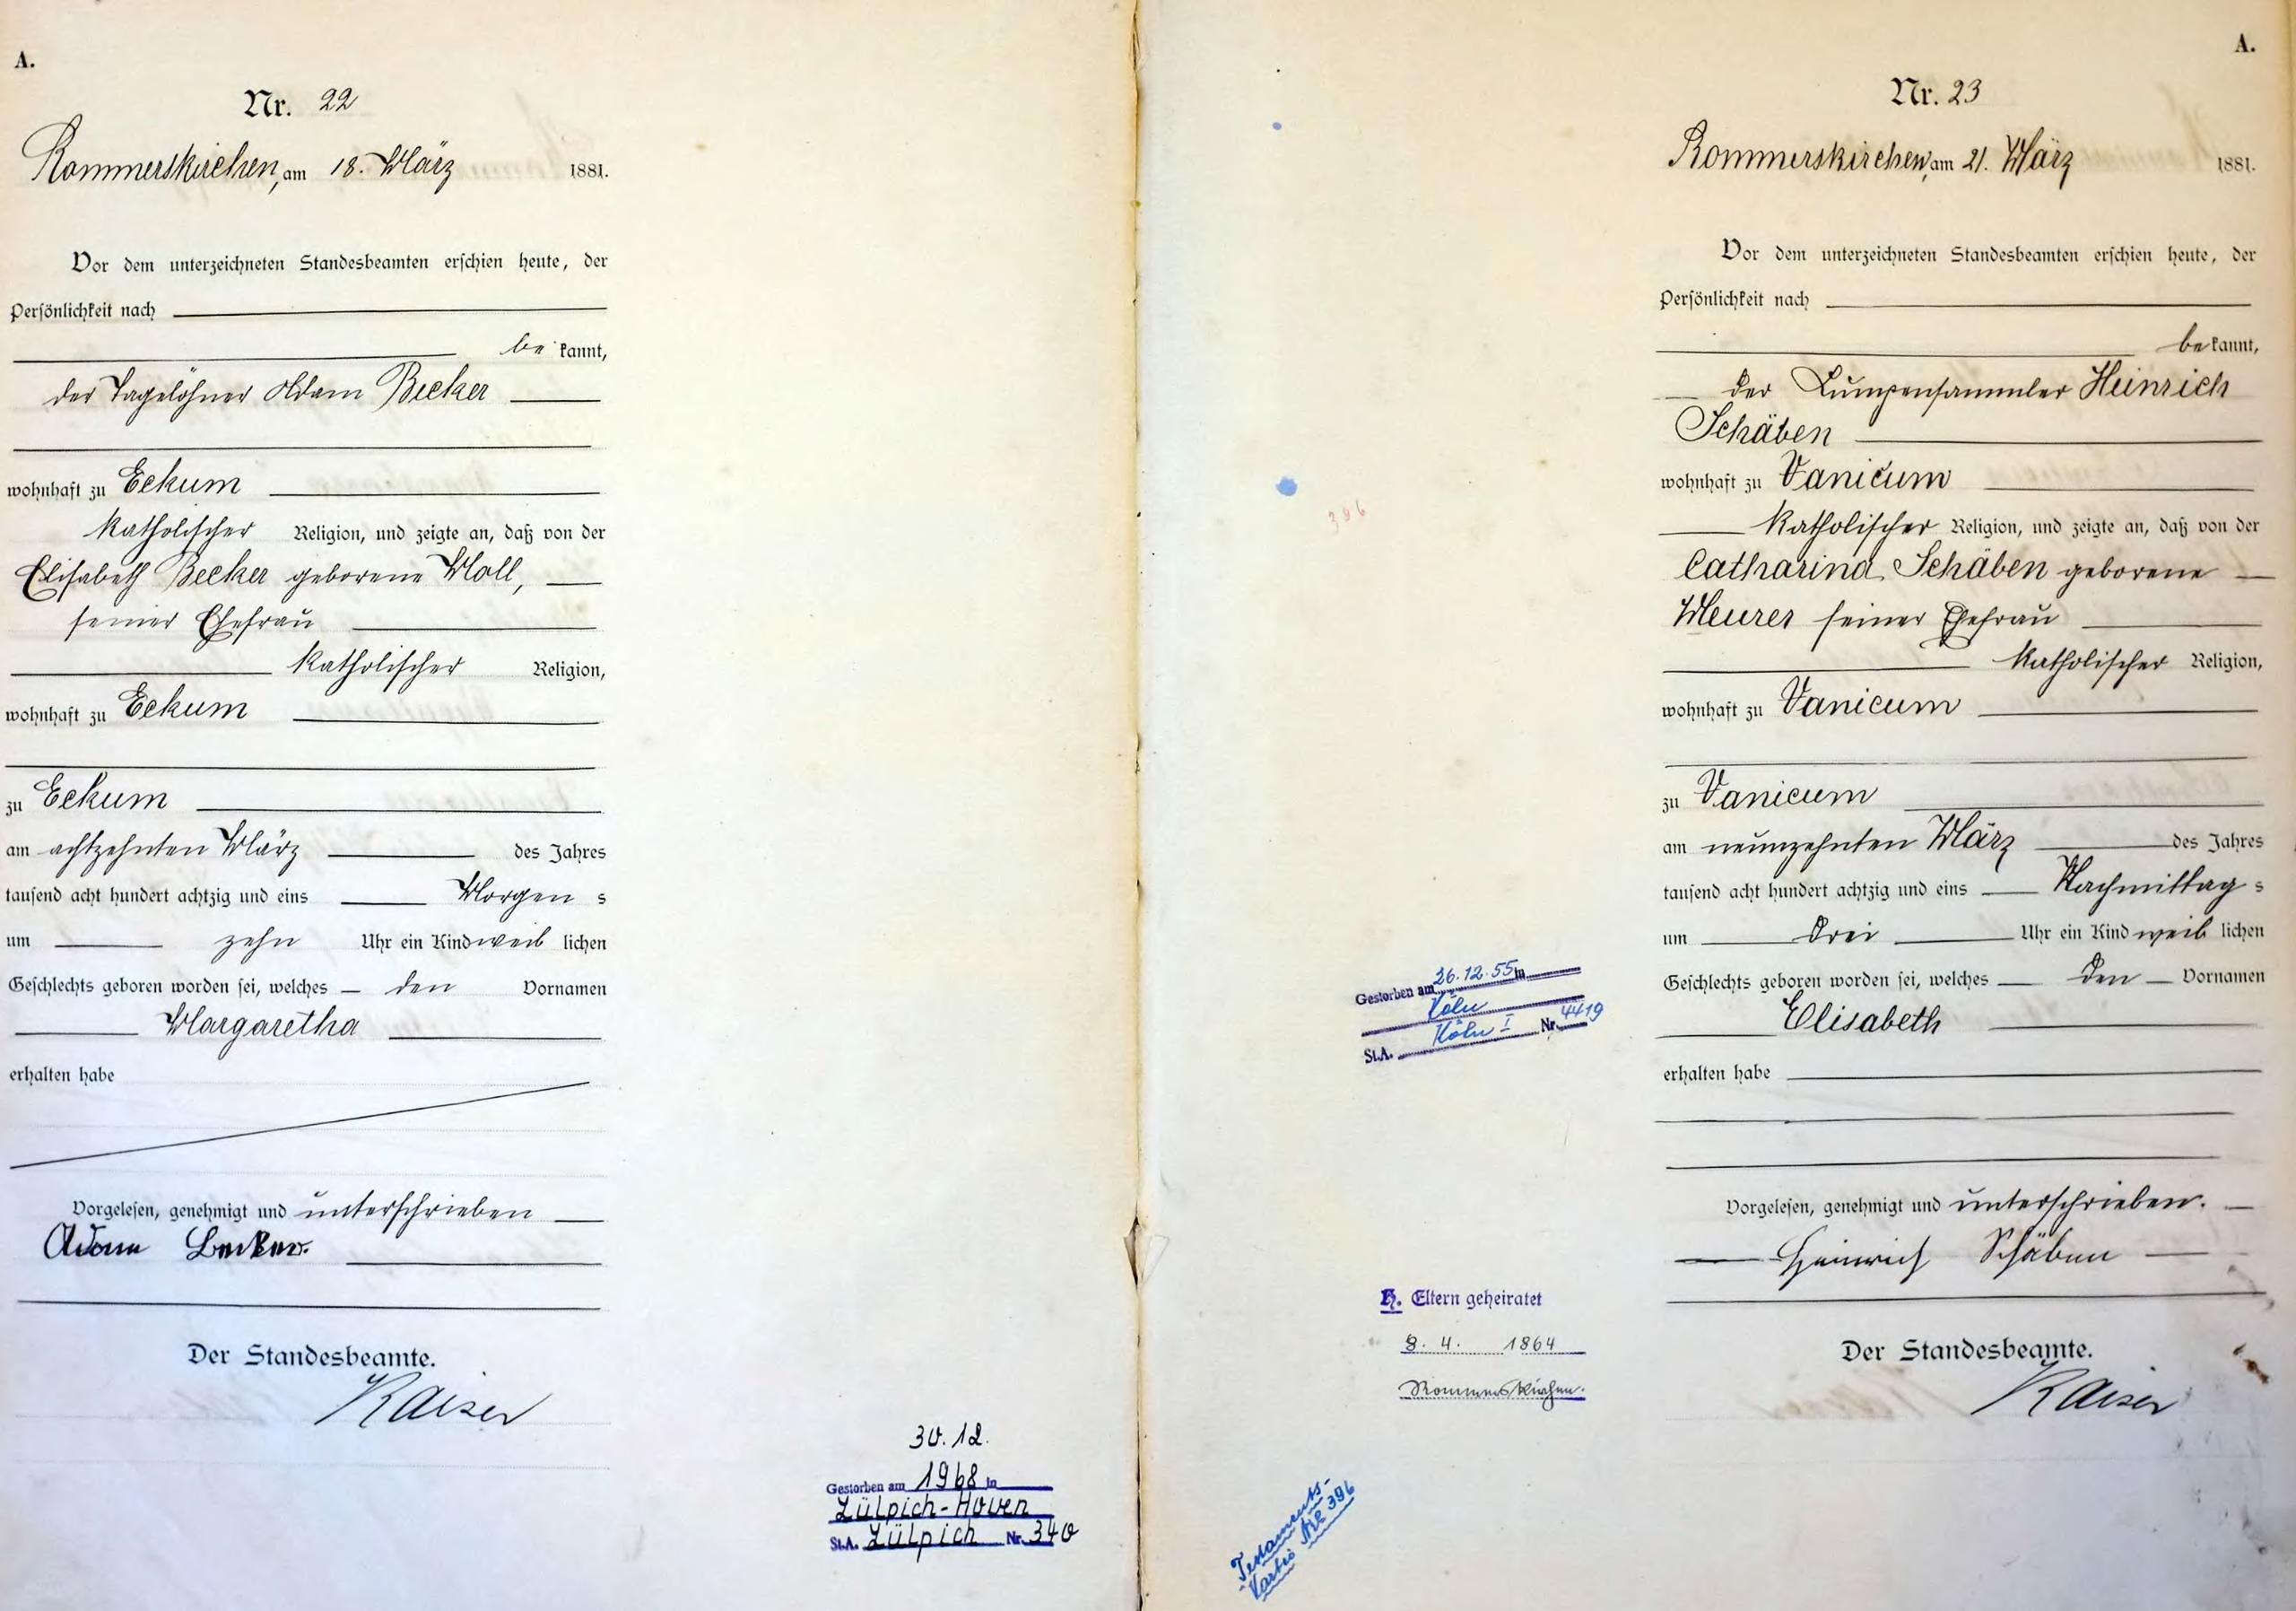 A.
Nr. 22
Rommerskirchen, am 18. März 1881.
Vor dem unterzeichneten Standesbeamten erschien heute, der
Persönlichkeit nach
be kannt,
der Tagelöhner Adam Becker
wohnhaft zu Eckum
katholischer Religion, und zeigte an, daß von der
Elisabeth Becker geborene Moll,
seiner Ehefrau
katholischer Religion,
wohnhaft zu Eckum
zu Eckum
am achtzehnten März des Jahres
tausend acht hundert achtzig und eins Morgen s
um zehn Uhr ein Kind weib lichen
Geschlechts geboren worden sei, welches den Vornamen
Margaretha
erhalten habe
Vorgelesen, genehmigt und unterschrieben
Adam Becker.
Der Standesbeamte.
Kaiser
30.12.
Gestorben am 1968 in
Zülpich-Hoven
St.A. Zülpich Nr. 340
A.
Nr. 23
Rommerskirchen, am 21. März 1881.
Vor dem unterzeichneten Standesbeamten erschien heute, der
Persönlichkeit nach
be kannt,
der Lumpensammler Heinrich
Schäben
wohnhaft zu Vanicum
katholischer Religion, und zeigte an, daß von der
Catharina Schäben geborene
Meurer seiner Ehefrau
katholischer Religion,
wohnhaft zu Vanicum
zu Vanicum
am neunzehnten März des Jahres
tausend acht hundert achtzig und eins Nachmittag s
um drei Uhr ein Kind weib lichen
Geschlechts geboren worden sei, welches den Vornamen
Elisabeth
erhalten habe
Vorgelesen, genehmigt und unterschrieben.
Heinrich Schäben
Der Standesbeamte.
Kaiser
396
Gestorben am 26.12.55 in
Köln
St.A. Köln I Nr. 4419
H. Eltern geheiratet
8. 4. 1864
Rommerskirchen.
Testaments-
Kartei No 396